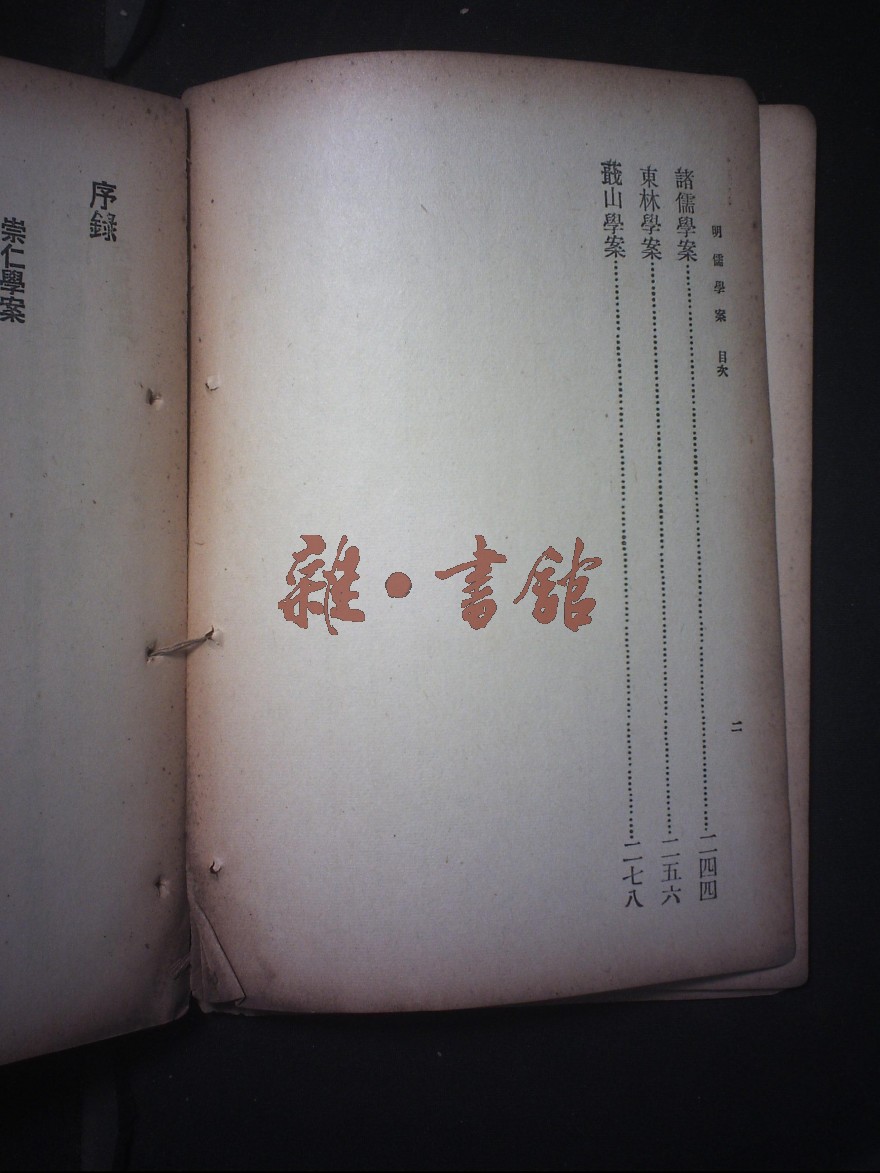 明儒學案 目次
二
諸儒學案……二四四
東林學案……二五六
蕺山學案……二七八
序錄
崇仁學案
雜·書館